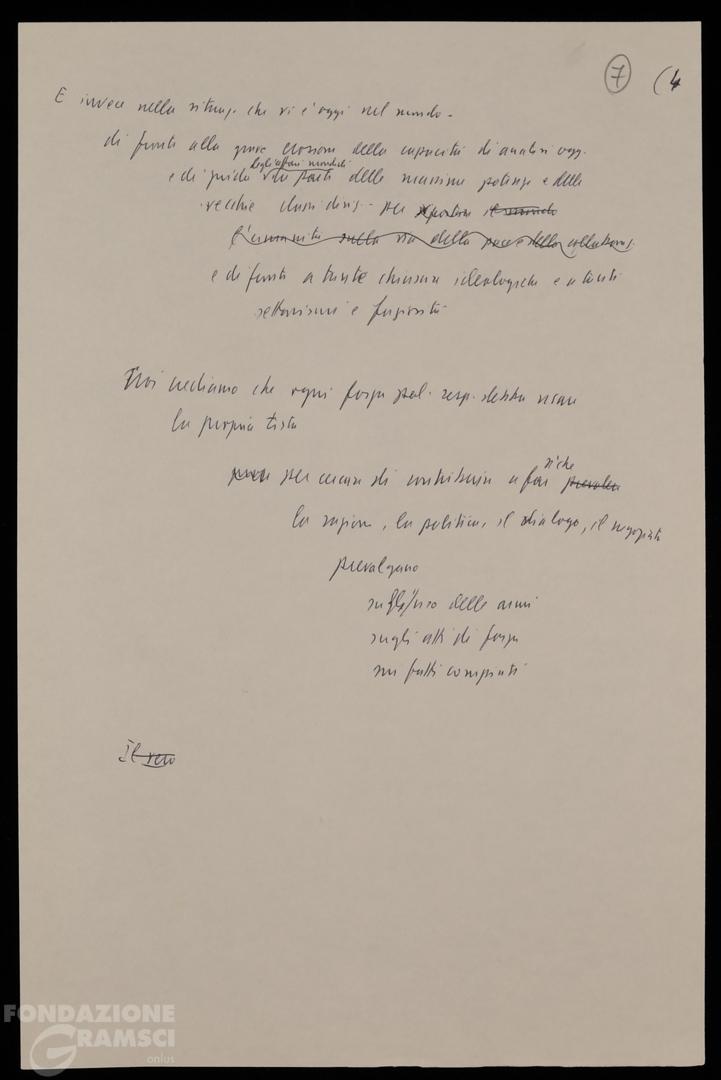 7 (4
E invece nella situaz. che vi è oggi nel mondo -
di fronte alla grave erosione della capacità di analisi ogg.
degli affari mondiali
e di guida da parte delle massime potenze e delle
vecchie classi dirig. - per portare il mondo
l'umanità sulla via della pace e della collaboraz.
e di fronte a tante chiusure ideologiche e a tanti
settarismi e faziosità
Noi crediamo che ogni forza pol. resp. debba usare
la propria testa
per cercare di contribuire a far prevalere
sì che
la ragione, la politica, il dialogo, il negoziato
prevalgano
sull'uso delle armi
sugli atti di forza
sui fatti compiuti
Il vero
FONDAZIONE
GRAMSCI
onlus